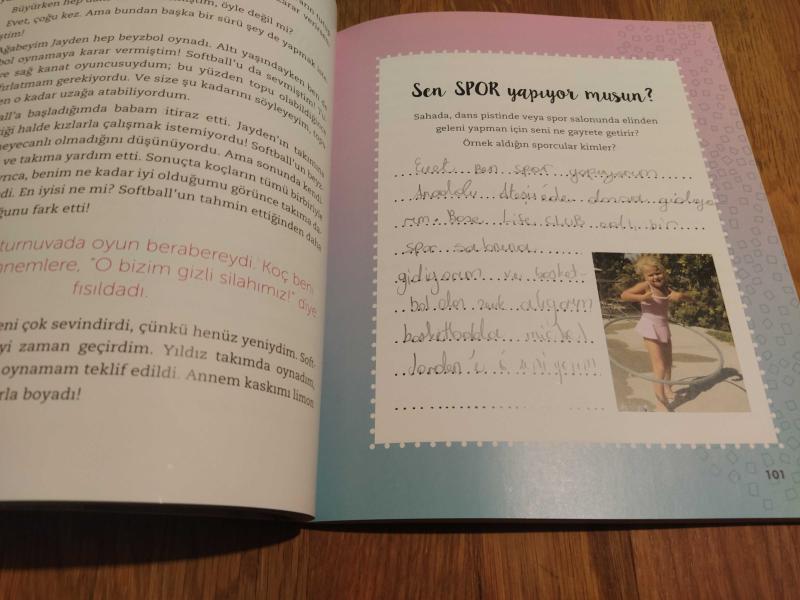 Büyürken hep
öyle değil mi?
Evet, çoğu kez. Ama bundan başka bir sürü şey de yapmak
Ağabeyim Jayden hep beyzbol oynadı. Altı yaşındayken ben de
oynamaya karar vermiştim! Softball'u da sevmiştim!
sağ kanat oyuncusuydum; bu yüzden topu olabildiğince
fırlatmam gerekiyordu. Ve size şu kadarını söyleyeyim, topu
o kadar uzağa atabiliyordum.
başladığımda babam itiraz etti. Jayden'ın takımına
halde kızlarla çalışmak istemiyordu! Softball'un beyz-
heyecanlı olmadığını düşünüyordu. Ama sonunda kendi
ve takıma yardım etti. Sonuçta koçların tümü birbiriyle
benim ne kadar iyi olduğumu görünce takıma da-
En iyisi ne mi? Softball'un tahmin ettiğinden daha
fark etti!
turnuvada oyun berabereydi. Koç beni
annemlere, "O bizim gizli silahımız!" diye
fısıldadı.
çok sevindirdi, çünkü henüz yeniydim. Soft-
zaman geçirdim. Yıldız takımda oynadım,
oynamam teklif edildi. Annem kaskımı limon
boyadı!
Sen SPOR yapıyor musun?
Sahada, dans pistinde veya spor salonunda elinden
geleni yapman için seni ne gayrete getirir?
Örnek aldığın sporcular kimler?
Evet Ben spor yapıyorum
Anadolu Ateşi'de dansa gidiyo
rum. Base Life CLUB adlı bir
spor salonuna
gidiyorum ve basket-
bol'dan zevk alıyorum
basketbolda
101